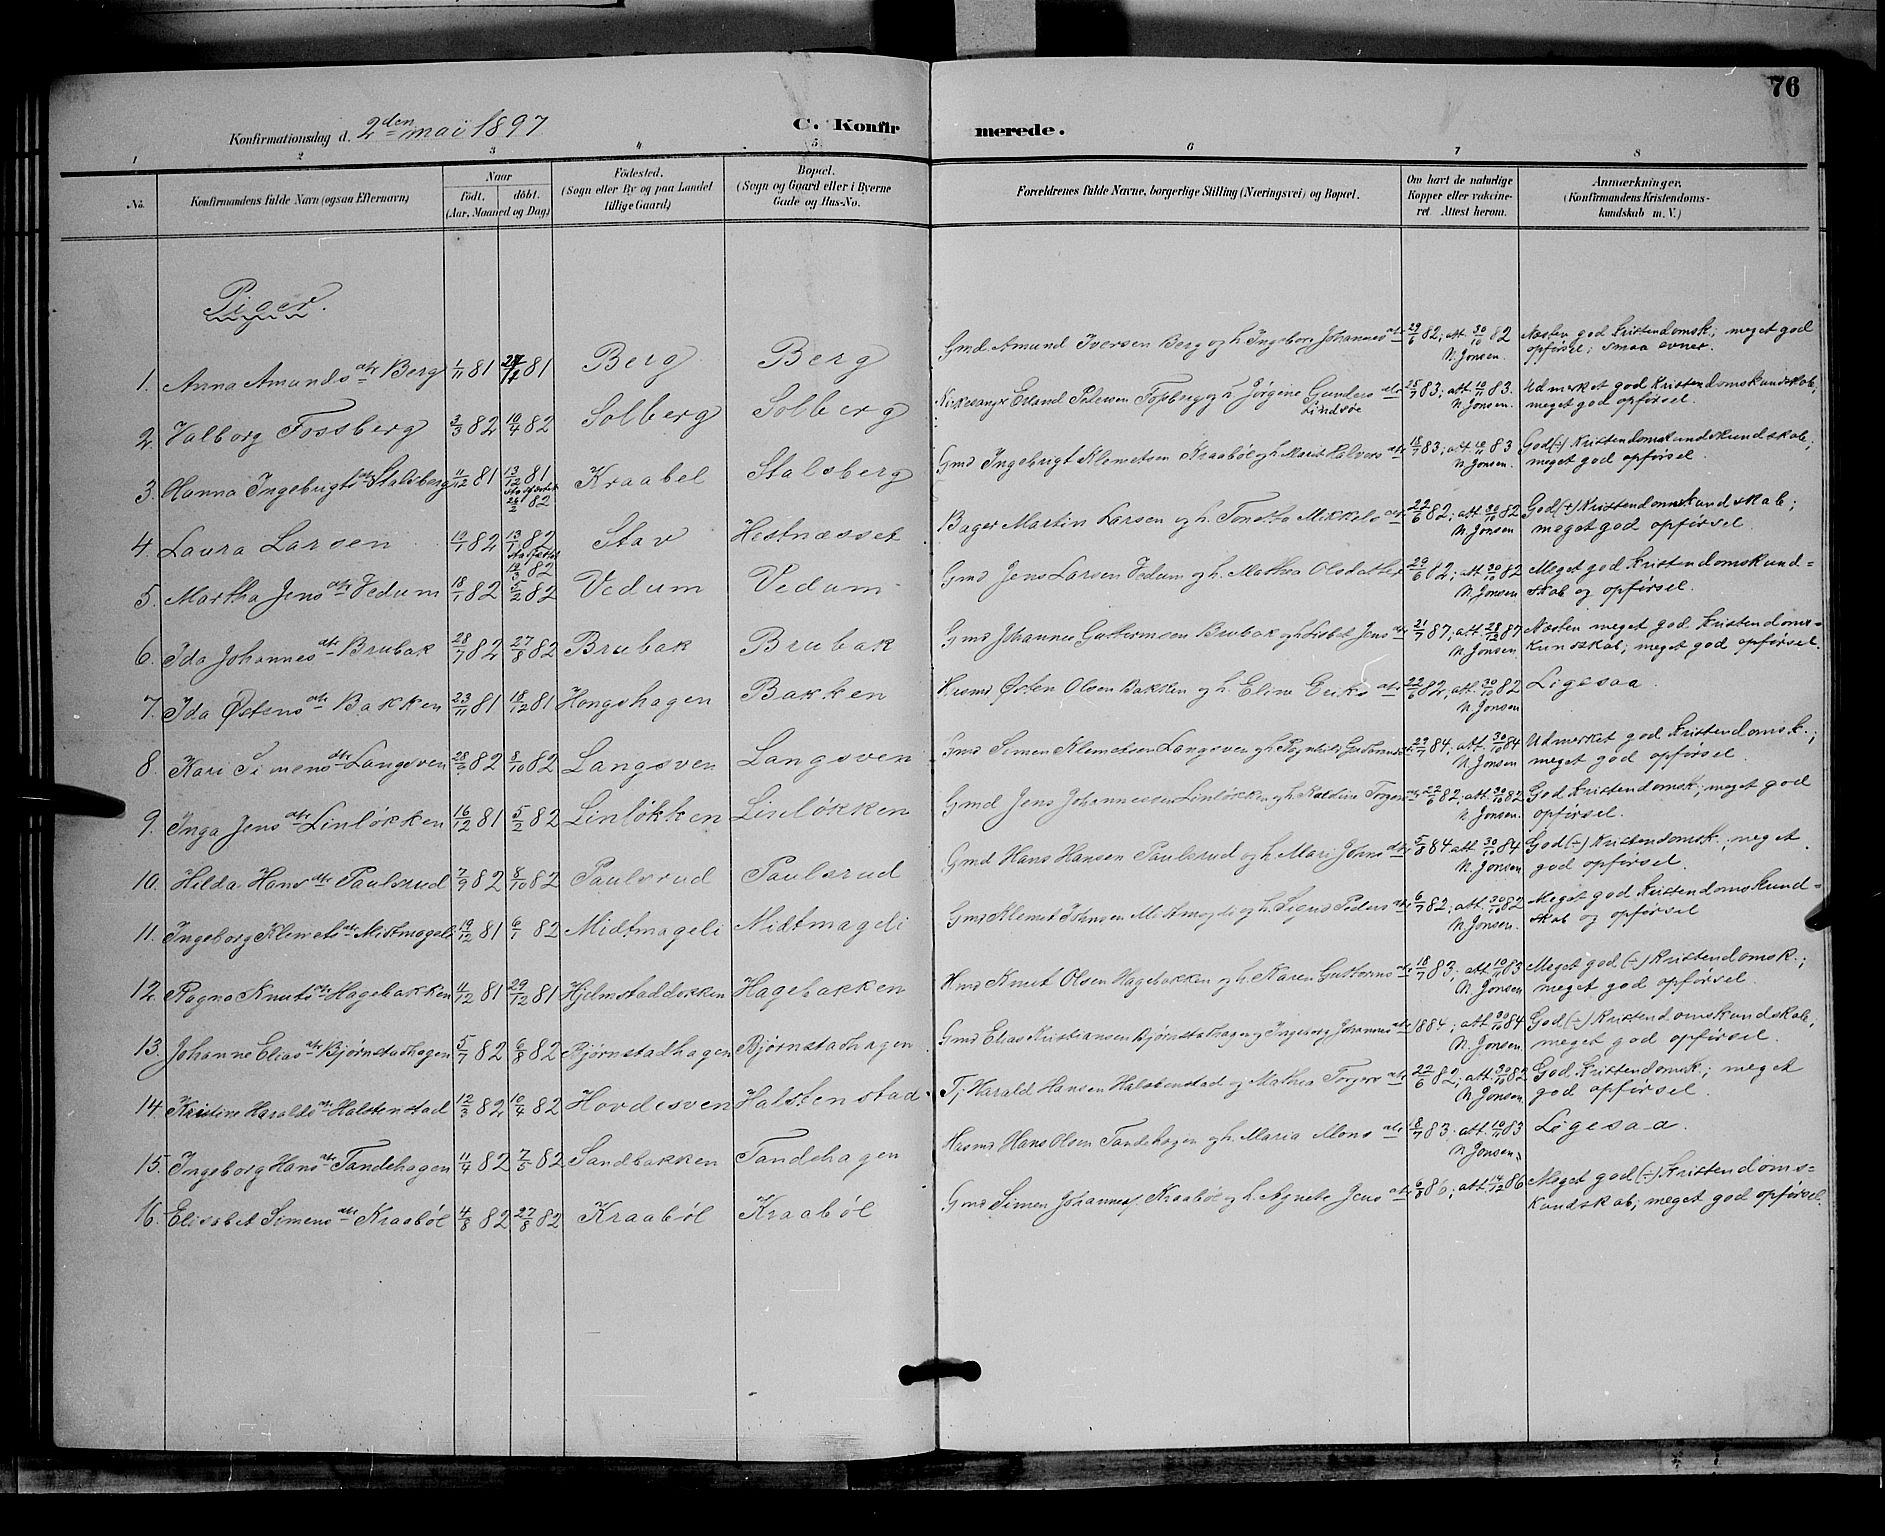 76
Konfirmationsdag d. 2den mai 1897
C. Konfirmerede.
1 2 3 4 5 6 7 8
No.
Konfirmandens fulde Navn (ogsaa Efternavn)
Naar
födt. döbt.
(Aar, Maaned og Dag)
Födested.
(Sogn eller By og paa Landet
tillige Gaard)
Bopæl.
(Sogn og Gaard eller i Byerne
Gade og Hus-No.
Forældrenes fulde Navne, borgerlige Stilling (Næringsvei) og Bopæl.
Om havt de naturlige
Kopper eller vakcine-
ret Attest herom.
Anmærkninger.
(Konfirmandens Kristendoms-
kundskab m. V.)
Piger.
1. Anna Amundsdtr Berg 1/11 81 81 Berg Berg Gmd Amund Iversen Berg og h. Ingeborg Johannesdtr 29/6 82; att. 30/10 82 N. Jonsen. Næsten god Kristendomsk.; meget god
opførsel; smaa evner.
2. Valborg Fossberg 3/3 82 10/4 82 Solberg Solberg Kirkesanger Erland Pedersen Fossberg og h. Jørgine Gundersdtr Lindsøe 25/7 83; att. 10/11 83. N. Jonsen. Udmerket god Kristendomskundskab;
meget god opførsel.
3. Hanna Ingebrigtsdtr Stalsberg 11/12 81 13/12 81 Stadfæstet 26/2 82 Kraabøl Stalsberg Gmd Ingebrigt Klemetsen Kraabøl og h. Marit Halvorsdtr 18/7 83; att. 10/11 83 N. Jonsen. God (÷) Kristendomskundskundskab;
meget god opførsel.
4. Laura Larsen 10/1 82 13/1 82 Stadfæstet 12/3 82 Stav Hestnæsset Bager Martin Larsen og h. Tonetta Mikkelsdtr 22/6 82; att. 30/10 82 N. Jonsen God (+) Kristendomskundskab;
meget god opførsel.
5. Martha Jensdtr Vedum 18/1 82 5/2 82 Vedum Vedum Gmd Jens Larsen Vedum og h. Mathea Olsdatter 29/6 82; att. 30/10 82 N. Jonsen Meget god Kristendomskund=
skab og opførsel.
6. Ida Johannesdtr Brubak 28/7 82 27/8 82 Brubak Brubak Gmd Johannes Guttormsen Brubak og h. Lisbet Jensdtr 21/7 87; att. 28/12 87 N. Jonsen Næsten meget god Kristendoms=
kundskab; meget god opførsel.
7. Ida Østensdtr Bakken 23/11 81 18/12 81 Hongshagen Bakken Husmd Østen Olsen Bakken og h. Eline Eriksdtr 22/6 82; att. 30/10 82 N. Jonsen Ligesaa.
8. Kari Simensdtr Langsven 28/9 82 8/10 82 Langsven Langsven Gmd Simen Klemetsen Langsven og h. Ragnhild 29/7 84; att. 30/10 84 N. Jonsen Udmerket god Kristendomsk.;
meget god opførsel.
9. Inga Jensdtr Linløkken 16/12 81 5/2 82 Linløkken Linløkken Gmd Jens Johannessen Linløkken og h. Torgersdtr 22/6 82; att. 30/10 82 N. Jonsen. God Kristendomsk.; meget god
opførsel.
10. Hilda Hansdtr Paulsrud 7/9 82 8/10 82 Paulsrud Paulsrud Gmd Hans Hansen Paulsrud og h. Mari Johnsdtr 5/8 84 att. 30/10 84 N. Jonsen God (÷) Kristendomsk. meget
god opførsel.
11. Ingeborg Klemetsdtr Mistmageli 19/12 81 6/1 82 Midtmageli Midtmageli Gmd Klemet Johnsen og h. Sigrid Pedersdtr 6/7 82; att. 30/10 82 N. Jonsen. Meget god Kristendomskund=
skab og opførsel
12. Ragna Knutsdtr Hagebakken 4/12 81 29/12 81 Hjelmstadløkken Hagebakken Hmd Knut Olsen Hagebakken og h. Karen Guttormsdtr 18/7 83; att. 10/11 83 N. Jonsen Meget god (÷) Kristendomsk.;
meget god opførsel.
13. Johanne Eliasdtr Bjørnstadhagen 5/7 82 6/8 82 Bjørnstadhagen Bjørnstadhagen Gmd Elias Kristiansen Bjørnstadhagen og Ingeborg Johannesdtr 1884; att. 30/10 84 N. Jonsen. God (÷) Kristendomskundskab;
meget god opførsel.
14. Kristine Haraldsdtr Halstenstad 12/3 82 10/4 82 Hovdesven Halstenstad Tj. Harald Hansen Halstenstad og Mathea Torgersdtr 22/6 82; att. 30/10 82 N. Jonsen God Kristendomsk.; meget
god opførsel.
15. Ingeborg Hansdtr Tandehagen 11/4 82 7/5 82 Sandbakken Tandehagen Husmd Hans Olsen Tandehagen og h. Maria Monsdtr 18/7 83. att. 10/11 83 N. Jonsen. Ligesaa.
16. Elissbet Simensdtr Kraabøl 4/8 82 27/8 82 Kraabøl Kraabøl Gmd Simen Johannes. Kraabøl og h. Agnete Jensdtr 6/8 86; att. 14/12 86 Meget god (÷) Kristendoms=
kundskab; meget god opførsel.